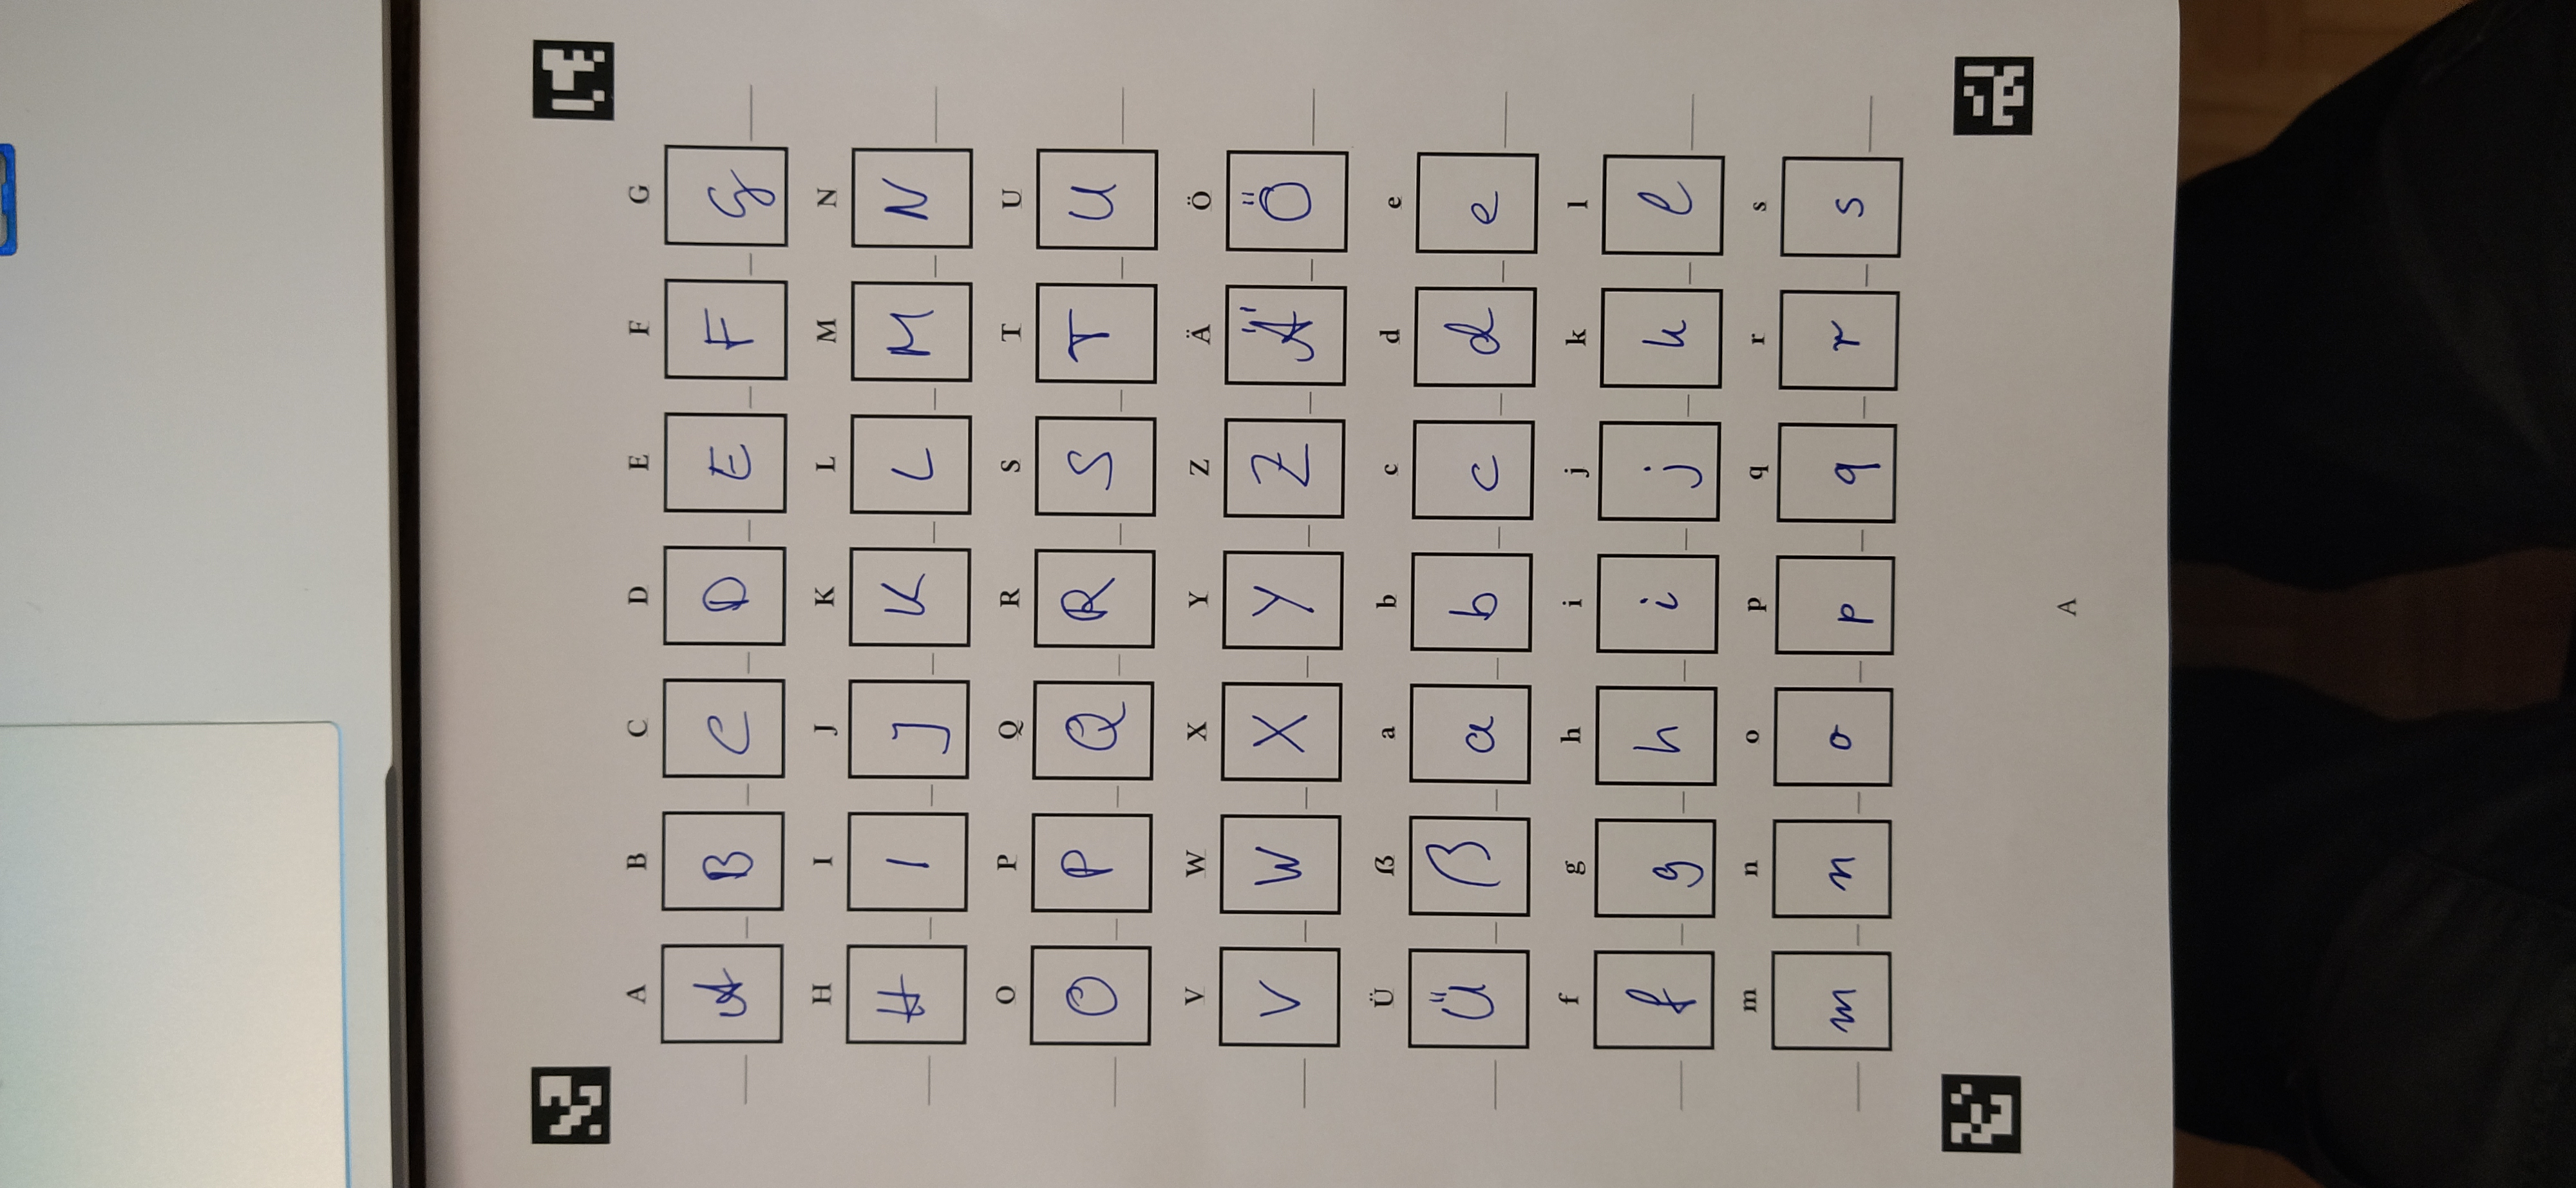 A B C D E F G
A B C D E F G
H I J K L M N
H I J K L M N
O P Q R S T U
O P Q R S T U
V W X Y Z Ä Ö
V W X Y Z Ä Ö
Ü ẞ a b c d e
Ü ß a b c d e
f g h i j k l
f g h i j k l
m n o p q r s
m n o p q r s
A